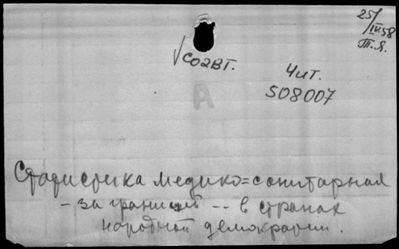 25/IV 58
Т.Я.
√ СО2ВТ.
Чит.
508007
А
Статистика медико=санитарная
- за границей -- в странах
народной демократии.